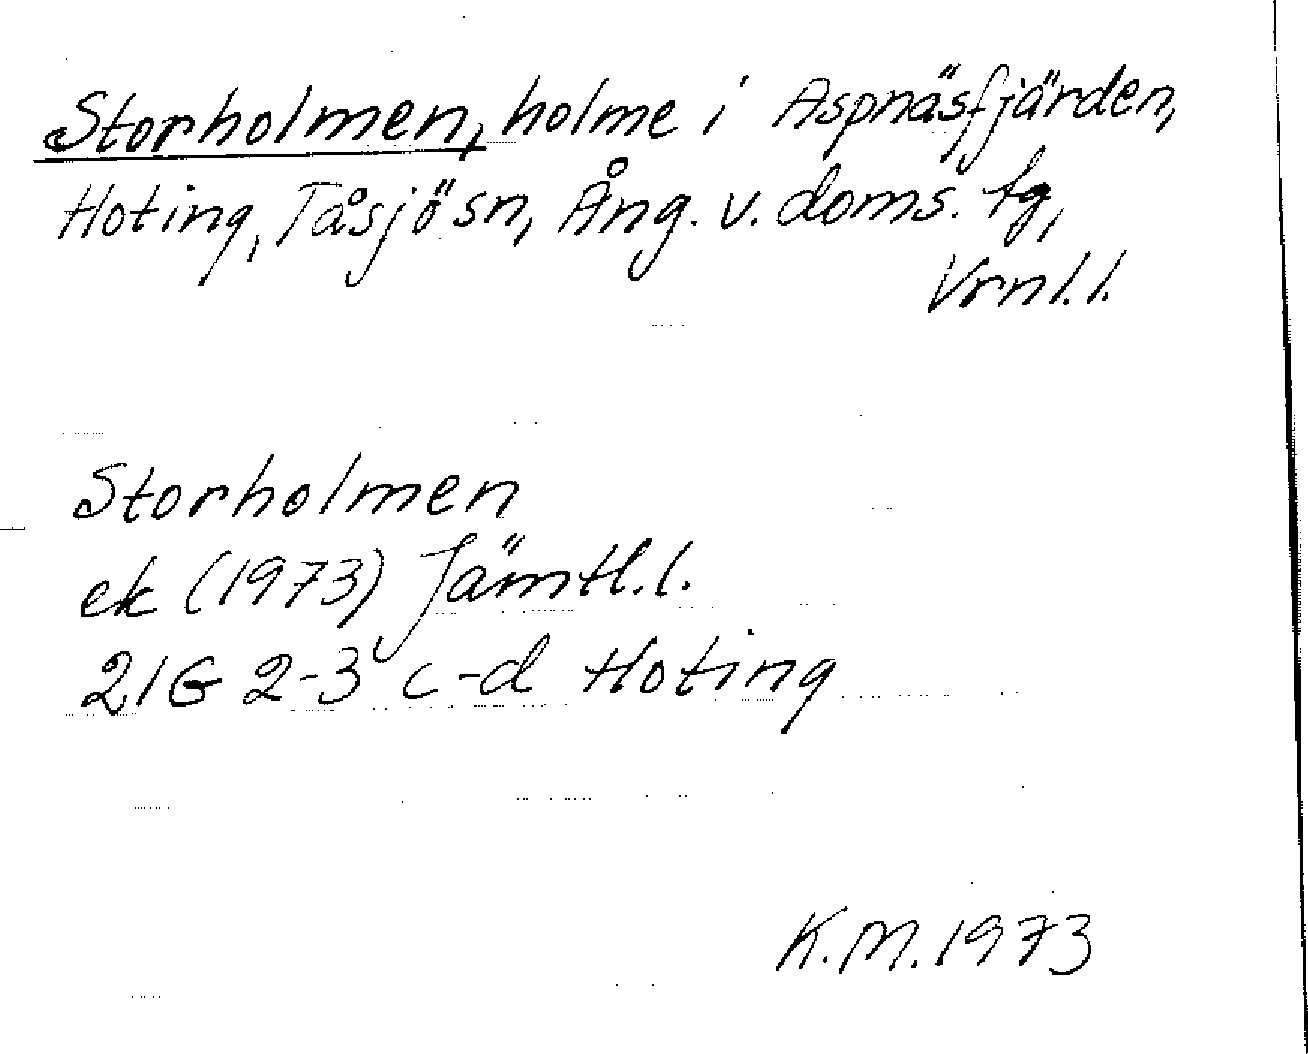 Storholmen, holme i Aspnäsfjärden,
Hoting, Tåsjö sn, Ång. v. doms. tg,
Vrnl. l.
Storholmen
ek (1973) Jämtl. l.
21G 2-3 c-d Hoting
K.M. 1973